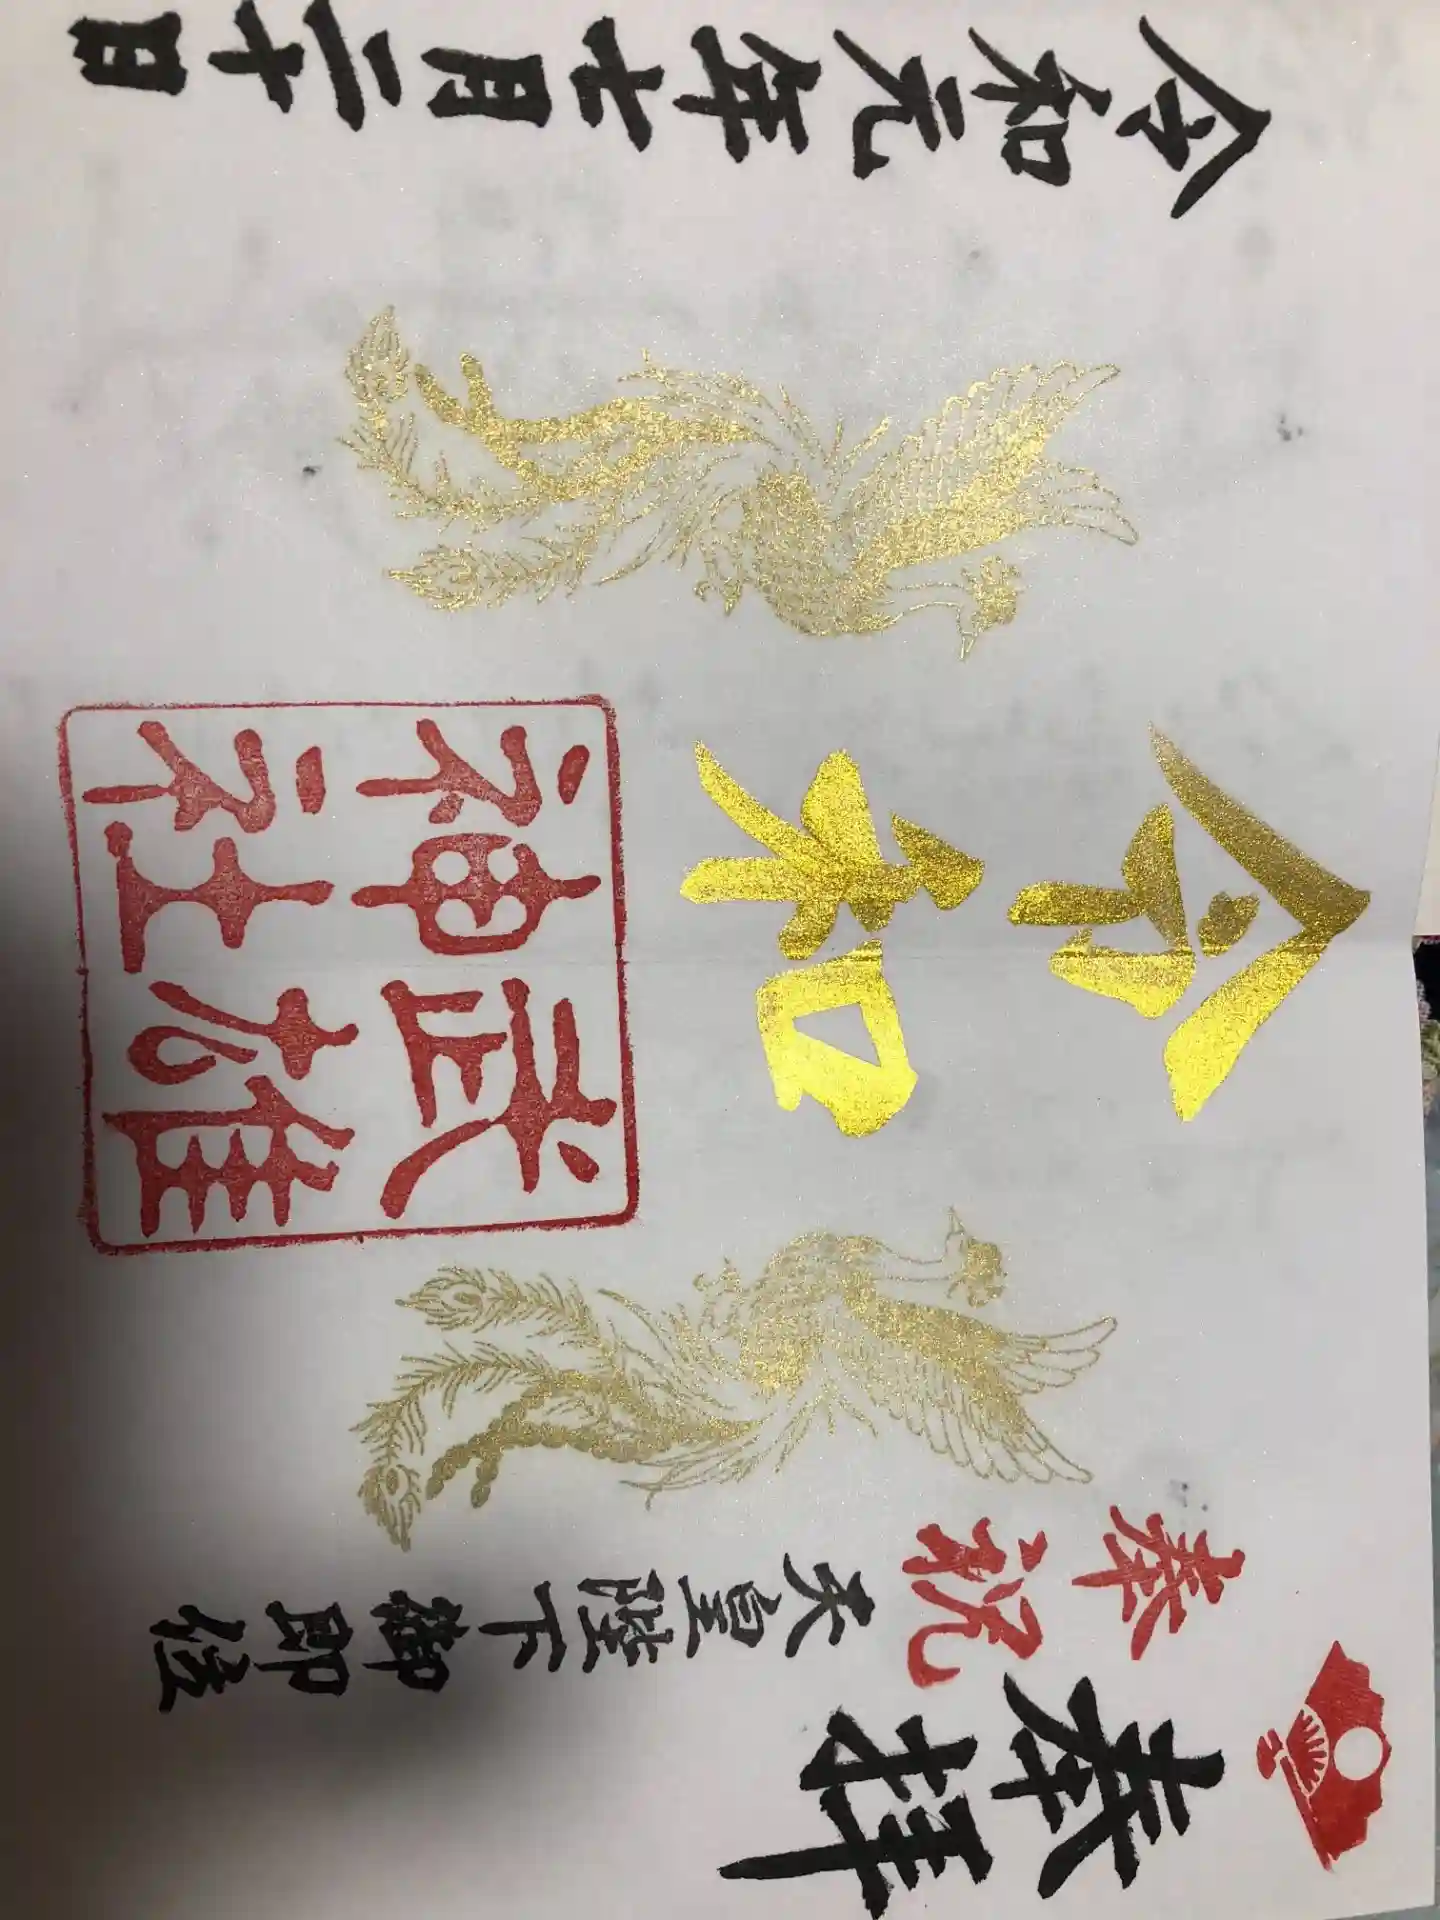 奉拝
奉祝
天皇陛下御即位
令和
武雄
神社
令和元年七月二十日